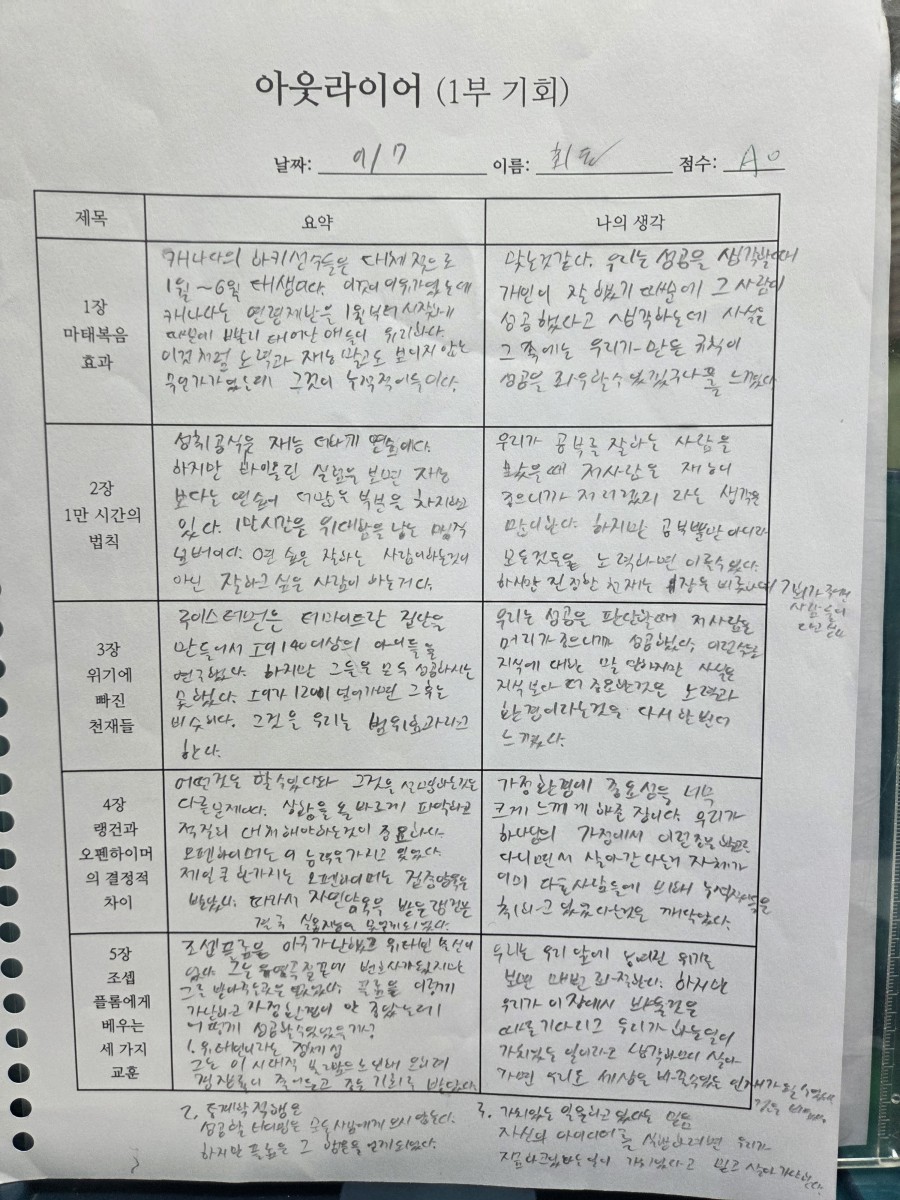 아웃라이어 (1부 기회)
날짜: 9/7 이름: 점수: A0
제목 요약 나의 생각
1장
마태복음
효과
캐나다의 하키선수들은 대체적으로
1월~6월 태생이다. 이것이 이유가있는데
캐나다는 연령제한을 1월부터 시작하기
때문에 빨리 태어난 애들이 유리하다.
이것처럼 노력과 재능 말고도 보이지 않는
무언가가있는데 그것이 누적적이득이다.
맞는것같다. 우리는 성공을 생각할때
개인이 잘 했기 때문에 그 사람이
성공했다고 생각하는데 사실은
그 쪽에는 우리가 만든 규칙이
성공을 좌우할수 있겠구나를 느꼈다
2장
1만 시간의
법칙
성취공식은 재능 더하기 연습이다.
하지만 바이올린 실험을 보면 재능
보다는 연습이 더많은 부분을 차지하고
있다. 1만시간은 위대함을 낳는 매직
넘버이다. 연습은 잘하는 사람이하는것이
아닌 잘하고 싶은 사람이 하는거다.
우리가 공부를 잘하는 사람을
보았을 때 저사람은 재능이
좋으니까 저러겠지 라는 생각을
많이한다. 하지만 공부뿐만 아니라
모든것들을 노력하면 이룰수있다.
하지만 진정한 천재는 1장을 비롯하여 기회가 주어진
사람들이
3장
위기에
빠진
천재들
루이스터먼은 터마이트란 집단을
만들어서 IQ140이상의 아이들을
연구했다. 하지만 그들을 모두 성공하시는
못했다. IQ가 120이 넘어가면 그후는
비슷하다. 그것을 우리는 범위효과라고
한다.
우리는 성공을 판단할때 저사람은
머리가좋으니까 성공했다, 이런식으로
지식에 대한 말 많하지만 사실은
지식보다 더 중요한것은 노력과
환경이라는것을 다시한번더
느꼈다.
4장
랭건과
오펜하이머
의 결정적
차이
어떤것을 할수있다와 그것을
다른문제이다. 상황을 올바르게 파악하고
적절히 대처해야하는것이 중요하다.
오펜하이머는 이 능력을가지고 있었다.
제일 큰 한가지는 오펜하이머는 집중양육을
받았다. 따라서 자연양육을 받은랭건은
결국 실용지능을 못얻게되었다.
가정환경에 중요성을 너무
크게 느끼게 해준 장이다. 우리가
하나님의 가정에서
다니면서 살아간다는거 자체가
이미 다른사람들에 비해
취하고 있었다는것을 깨달았다.
5장
조셉
플롬에게
베우는
세 가지
교훈
조셉플롬은 아주가난했고 유대인 출신이
었다. 그는 우여곡절끝에 변호사가됐지만
그를 받아주는곳은 없었다. 플롬은 이렇게
가난하고 가정환경이 안 좋았는데
어떻게 성공할수있었을까?
1. 유대인이라는 정체성
우리는 우리 앞에 놓여진 위기를
보면 매번 좌절한다. 하지만
우리가 이 장에서 배울것은
때를 기다리고 우리가 하는일이
가치있는 일이라고 생각하며 살아
가면 우리도 세상을 바꿀수있는 인재가 될수있다는
것을 배웠다.
2. 통계학적행운
하지만 플롬은 그 행운을 얻게되었다.
3. 가치있는 일을하고 있다는 믿음
자신의 아이디어를 실행하려면 우리가
지금하고있는일이 가치있다고 믿고 살아가야한다